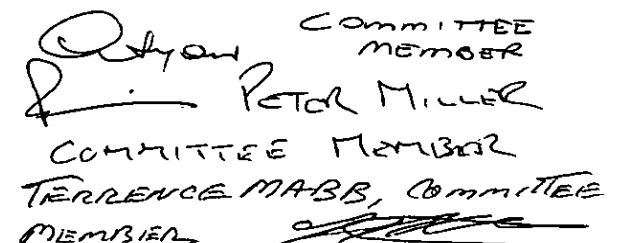 COMMITTEE
MEMBER
PETER MILLER
COMMITTEE MEMBER
TERRENCE MABB, COMMITTEE
MEMBER